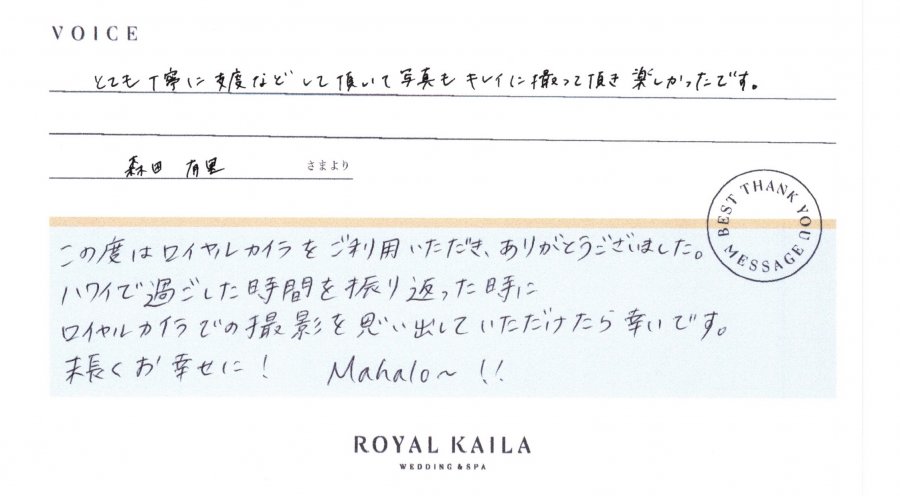 VOICE
とても丁寧に支度などして頂いて写真もキレイに撮って頂き楽しかったです。
森田 有里 さまより
BEST THANK YOU MESSAGE
この度はロイヤルカイラをご利用いただき、ありがとうございました。
ハワイで過ごした時間を振り返った時に
ロイヤルカイラでの撮影を思い出していただけたら幸いです。
末長くお幸せに! Mahalo〜!!
ROYAL KAILA
WEDDING & SPA